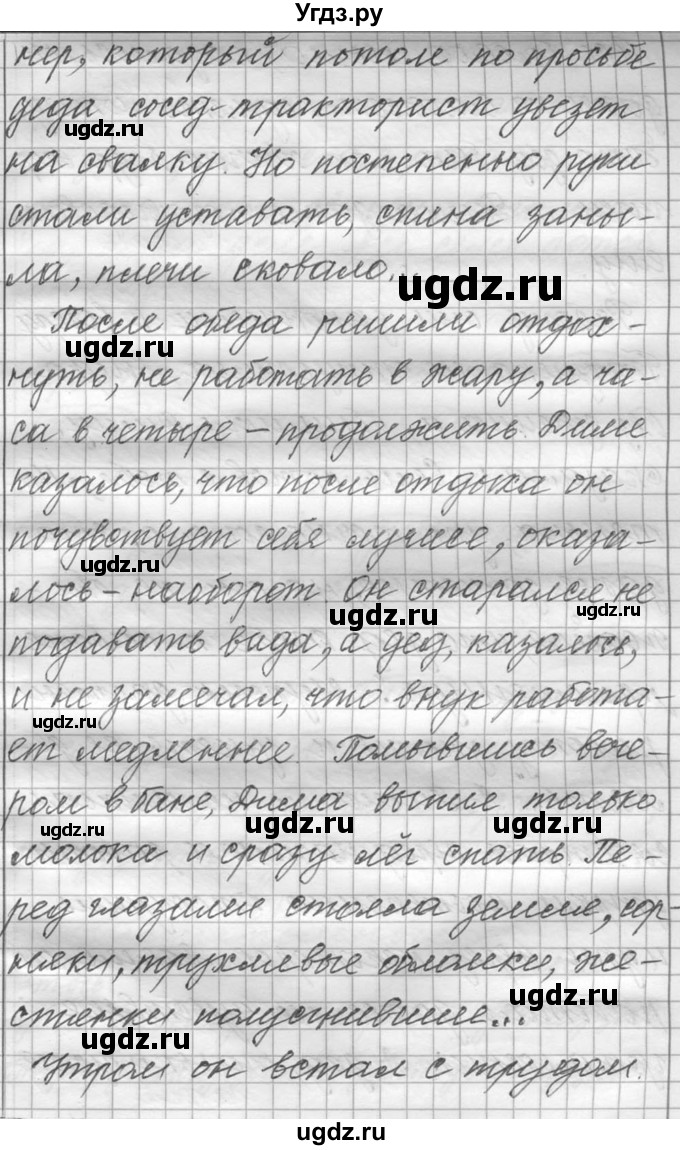 Угдз.ру
нер, который потом по просьбе
деда сосед-тракторист увезет
ugdz.ru
на свалку. Но постепенно руки
стали уставать, спина заны-
ла, плечи сковало...
ugdz.ru
После обеда решили отдох-
ugdz.ru
нуть, не работать в жару, а ча-
са в четыре – продолжить. Диме
казалось, что после отдыха он
почувствует себя лучше, оказа-
ugdz.ru
лось – наоборот. Он старался не
ugdz.ru ugdz.ru
подавать вида, а дед, казалось,
и не замечал, что внук работа-
ugdz.ru
ет медленнее. Помывшись вече-
ром в бане, Дима выпил только
ugdz.ru ugdz.ru ugdz.ru
молока и сразу лёг спать. Пе-
ред глазами стояла земля, сор-
няки, трухлявые обломки, же-
стянки полусгнившие...
ugdz.ru
ugdz.ru
Утром он встал с трудом.
ugdz.ru